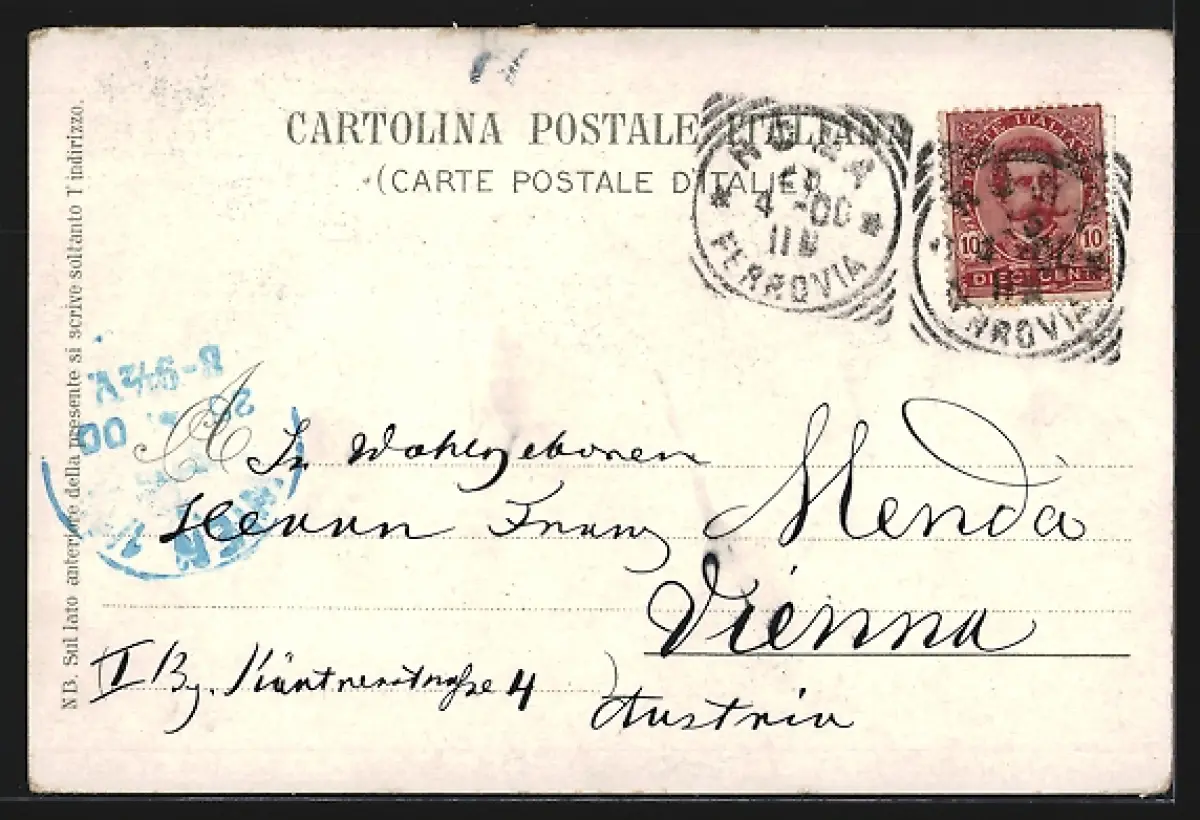 CARTOLINA POSTALE ITALIANA
(CARTE POSTALE D'ITALIE)
ROMA
4 -00
11
FERROVIA
POSTE ITALIANE
10 10
DIECI CENT
FERROVIA
NB. Sul lato anteriore della presente si scrive soltanto l'indirizzo.
8-9½V
00
WIEN
A Sr. Wohlgeboren
Herrn Franz Menda
Vienna
I Bz. Kärtnerstraße 4
Austria